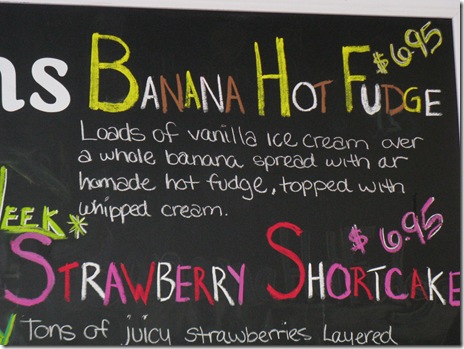 ns BANANA HOT FUDGE $6.95
Loads of vanilla ice cream over
a whole banana spread with ar
homade hot fudge, topped with
whipped cream.
EEK*
STRAWBERRY SHORTCAKE $6.95
Tons of juicy strawberries layered